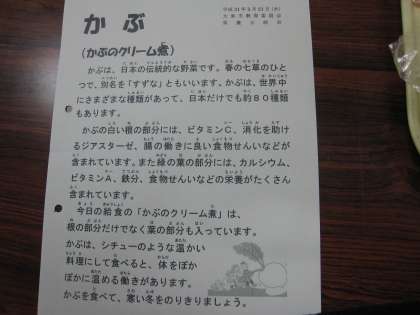 かぶ
平成31年3月23日(水)
(かぶのクリーム煮)
かぶは、日本の伝統的な野菜です。春の七草のひと
つで、別名を「すずな」ともいいます。かぶは、世界中
にさまざまな種類があって、日本だけでも約80種類
もあります。
かぶの白い根の部分には、ビタミンC、消化を助け
るジアスターゼ、腸の働きに良い食物せんいなどが
含まれています。また緑の葉の部分には、カルシウム、
ビタミンA、鉄分、食物せんいなどの栄養がたくさん
含まれています。
今日の給食の「かぶのクリーム煮」は、
根の部分だけでなく葉の部分も入っています。
かぶは、シチューのような温かい
料理にして食べると、体をぽか
ぽかに温める働きがあります。
かぶを食べて、寒い冬をのりきりましょう。